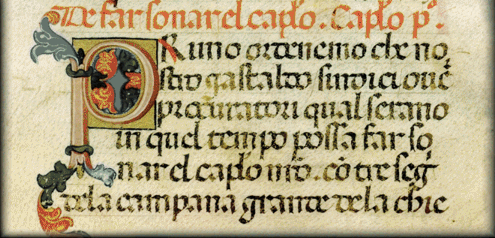 De far sonar el caplo. Caplo pº.
PRimo ordenemo che no
stro gastaldo sindici ouer
procuratori qual serano
in quel tempo possa far so
nar el caplo nro. cō tre seg
dela campana grande dela chie